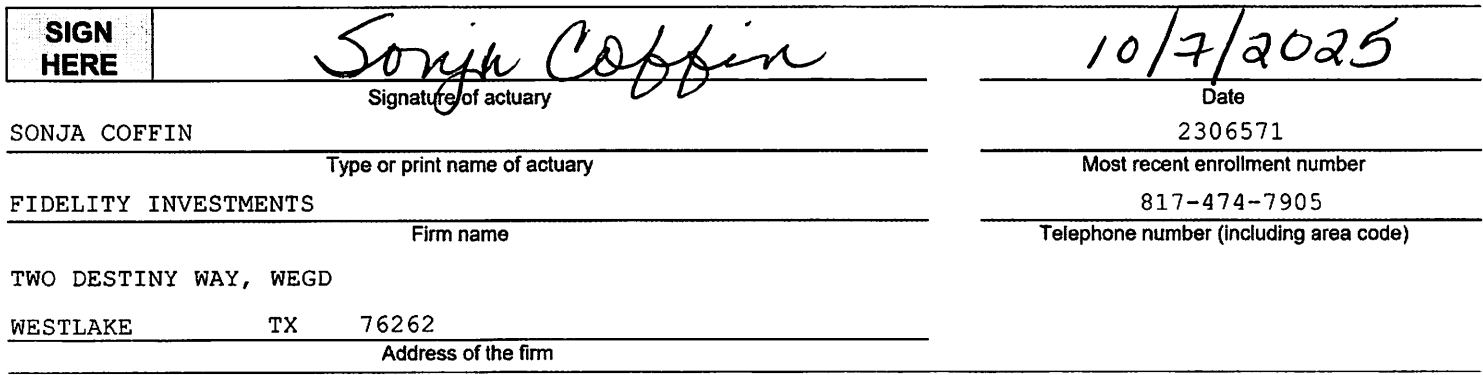 SIGN
HERE
Sonja Coffin
10/7/2025
Signature of actuary
Date
SONJA COFFIN
2306571
Type or print name of actuary
Most recent enrollment number
FIDELITY INVESTMENTS
817-474-7905
Firm name
Telephone number (including area code)
TWO DESTINY WAY, WEGD
WESTLAKE TX 76262
Address of the firm